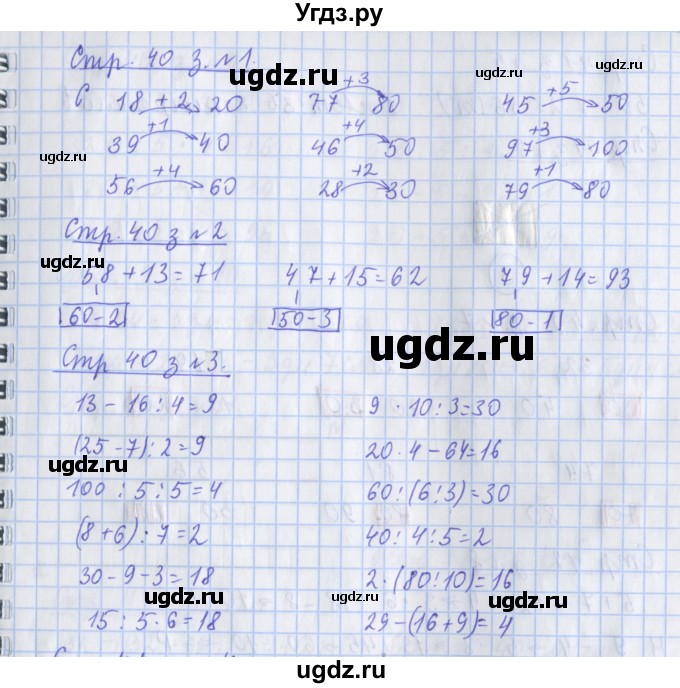 Угдз.ру
Стр. 40 з. №1.
ugdz.ru
С 18 +2 20 77 +3 80 45 +5 50
ugdz.ru
39 +1 40 46 +4 50 97 +3 100
56 +4 60 28 +2 30 79 +1 80
ugdz.ru ugdz.ru
Стр. 40 з №2
ugdz.ru
58 + 13 = 71 47 + 15 = 62 79 + 14 = 93
60-2 50-3 80-1
ugdz.ru
Стр 40 з №3.
ugdz.ru
13 - 16 : 4 = 9 9 · 10 : 3 = 30
(25 - 7) : 2 = 9 20 · 4 - 64 = 16
ugdz.ru ugdz.ru
100 : 5 : 5 = 4 60 : (6 : 3) = 30
ugdz.ru
(8 + 6) : 7 = 2 40 : 4 : 5 = 2
30 - 9 - 3 = 18 2 · (80 : 10) = 16
ugdz.ru ugdz.ru
15 : 5 · 6 = 18 29 - (16 + 9) = 4
ugdz.ru